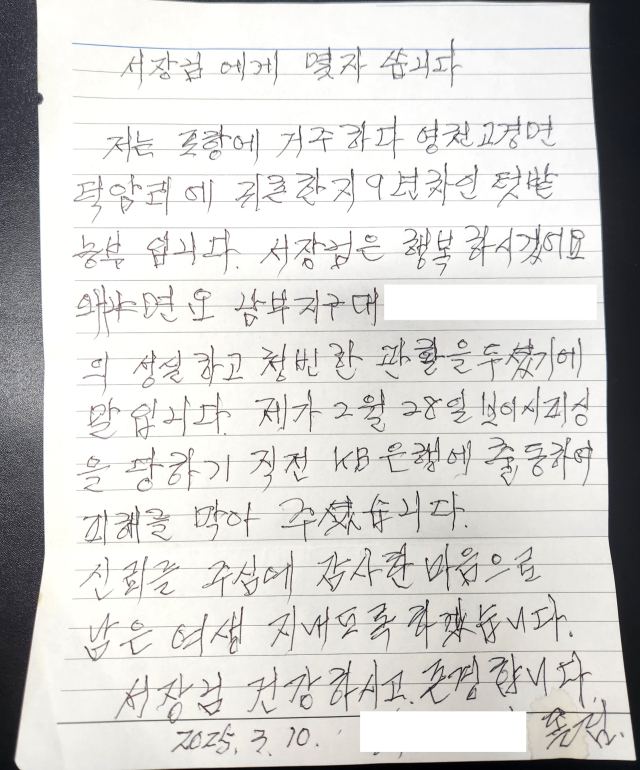 서장님에게 몇자 씁니다
저는 포항에 거주하다 영천고경면
덕암리에 귀촌한지 9년차인 텃밭
농부 입니다. 서장님은 행복하시겠어요
왜냐면요 남부지구대
의 성실하고 청빈한 관활을 두셨기에
말입니다. 제가 2월 28일 보이시피싱
을 당하기 직전 KB은행에 출동하여
피해를 막아 주셨습니다.
신뢰를 주심에 감사한 마음으로
남은 여생 지내도록 하겠습니다.
서장님 건강하시고. 존경합니다.
2025. 3. 10. 올림.